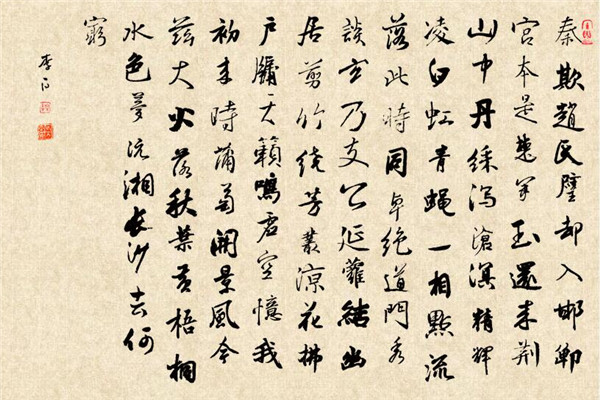 秦欺趙氏璧却入邯鄲
宮本是楚家玉還来荆
山中丹綵瀉滄溟精輝
凌白虹青蠅一相點流
落此時同卓絕道門秀
談玄乃支公延蘿結幽
居剪竹繞芳叢涼花拂
戶牖天籟鳴虛空憶我
初来時蒲萄開景風今
茲大火落秋葉黃梧桐
水色夢沅湘長沙去何
窮
李白